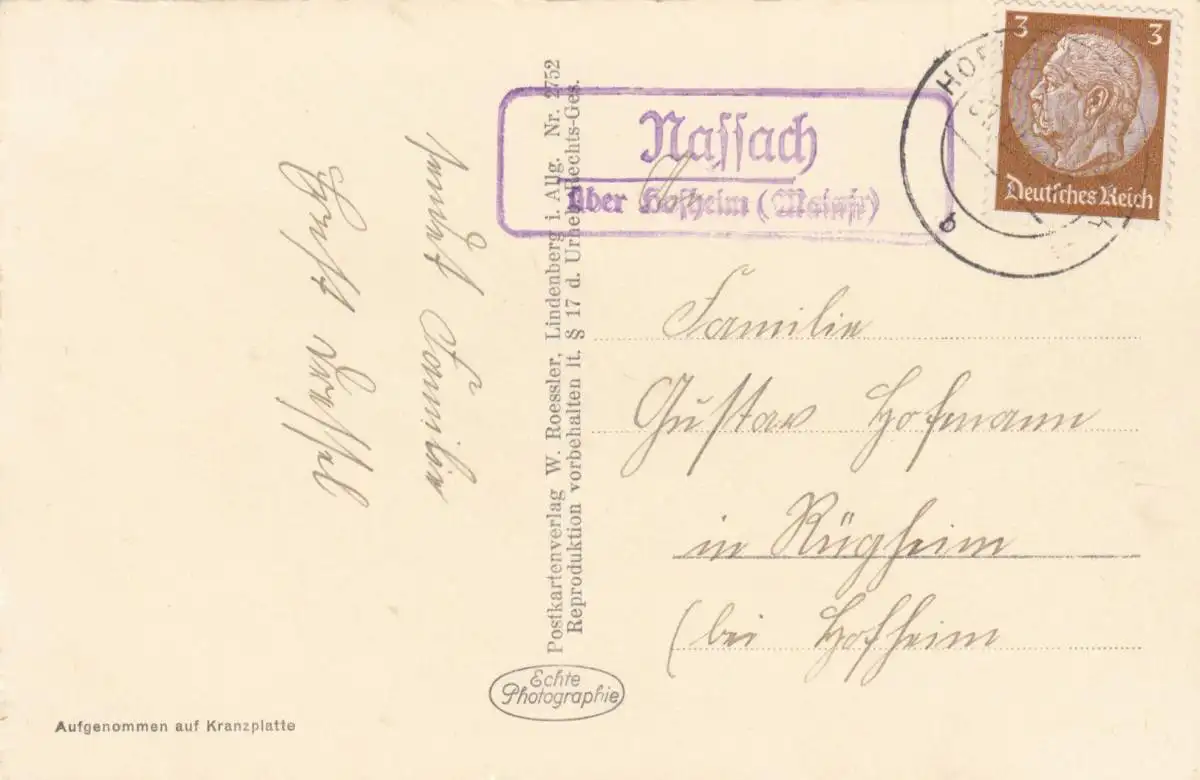 Ernst Dressel
samt Familie
Postkartenverlag W. Roessler, Lindenberg i. Allg. Nr. 2752
Reproduktion vorbehalten lt. § 17 d. Urheb. Rechts-Ges.
Nassach
über Hofheim (Mainfr)
3 3
Deutsches Reich
HOF
b
Familie
Gustav Hofmann
in Rügheim
(bei Hofheim
Echte
Photographie
Aufgenommen auf Kranzplatte